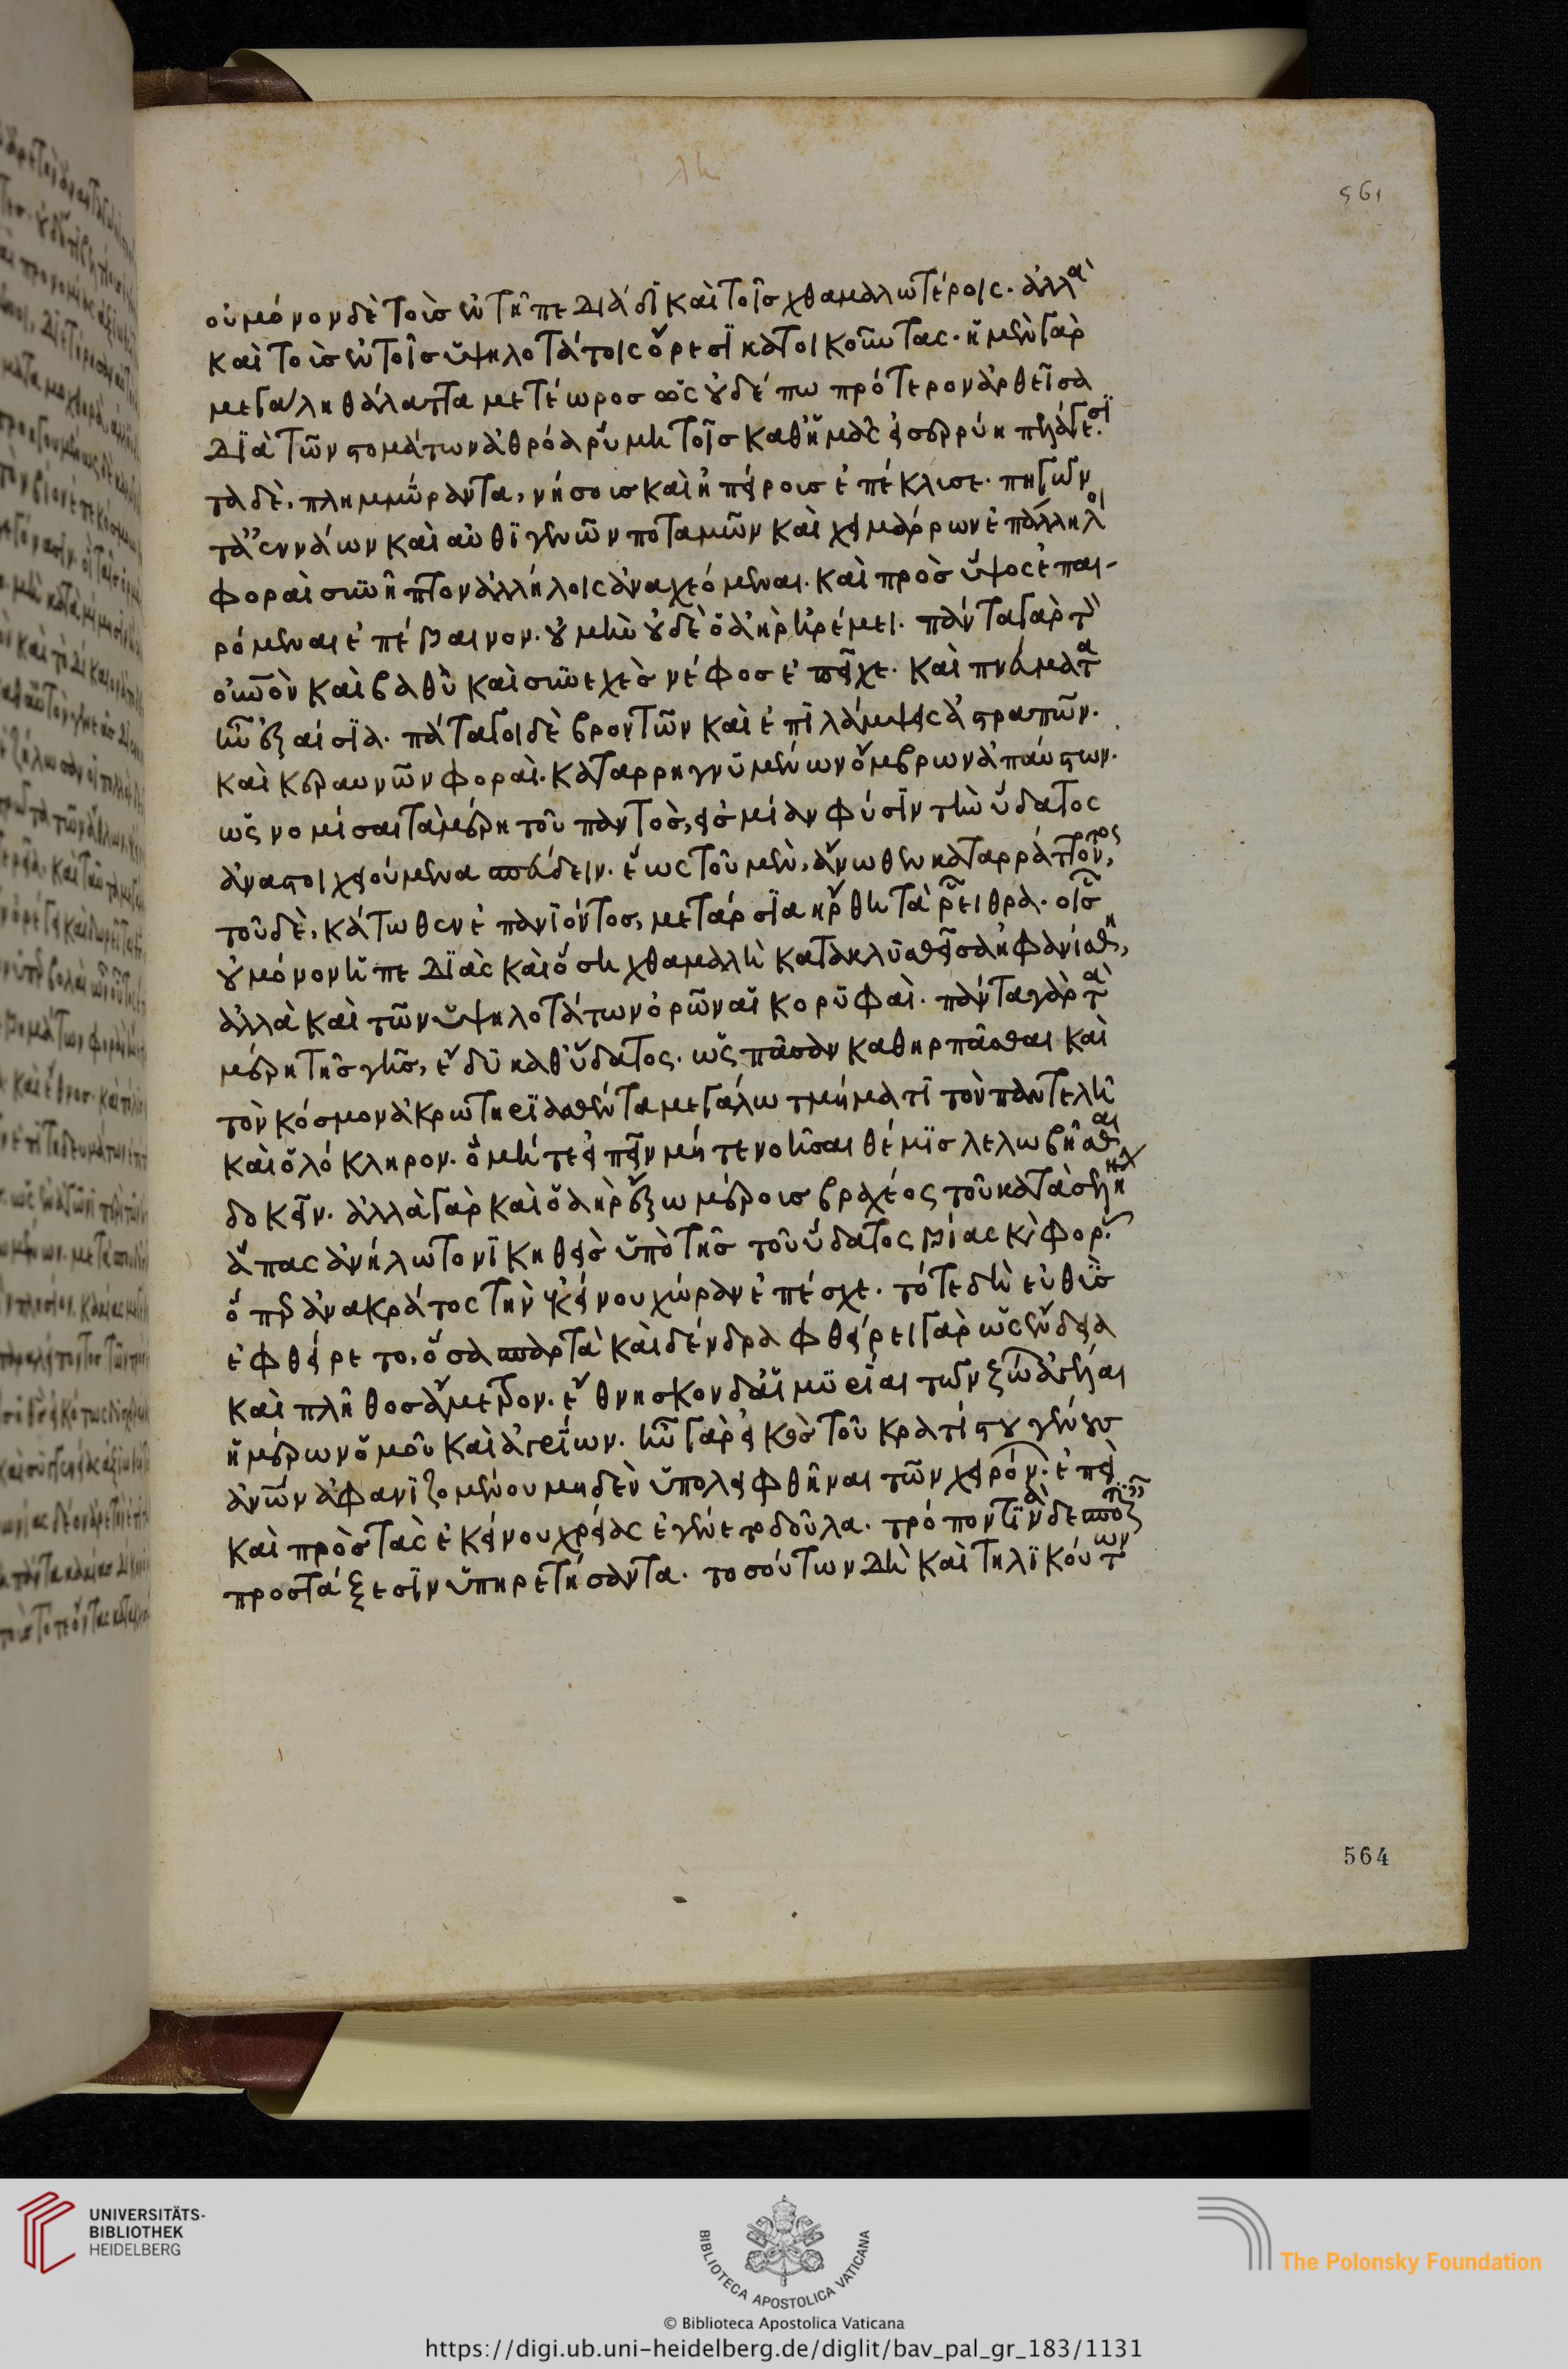 οὐ μόνον δὲ τοὺς ἐν τῇ πεδιάδι καὶ τοῖς χθαμαλωτέροις. ἀλλὰ
καὶ τοὺς ἐν τοῖς ὑψηλοτάτοις ὄρεσι κατοικοῦντας. ἡ μὲν γὰρ
μεγάλη θάλαττα μετέωρος ὡς οὐδέπω πρότερον ἀρθεῖσα
διὰ τῶν στομάτων ἀθρόα ῥύμη τοῖς καθ' ἡμᾶς εἰσερρύη πελάγεσι.
τὰ δὲ, πλημμύραντα, νήσους καὶ ἠπείρους ἐπέκλυσε. πηγῶν
τ' ἀεννάων καὶ αὐθιγενῶν ποταμῶν καὶ χειμάρρων ἐπάλληλοι
φοραὶ συνῆπτον ἀλλήλοις ἀναχεόμεναι. καὶ πρὸς ὕψος ἐπαι-
ρόμεναι ἐπέβαινον. οὐ μὴν οὐδὲ ὁ ἀὴρ ἠρέμει. πάντα γὰρ τὸν
οὐνὸν καὶ βαθὺ καὶ συνεχὲς νέφος ἐπεῖχε. καὶ πνεύματα
ἦν ἐξαίσια. πάταγοι δὲ βροντῶν καὶ ἐπιλάμψεις ἀστραπῶν.
καὶ κεραυνῶν φοραὶ. καταρρηγνυμένων ὄμβρων ἀπαύστων.
ὡς νομίσαι τὰ μέρη τοῦ παντὸς, εἰς μίαν φύσιν τὴν ὕδατος
ἀναστοιχειούμενα σπεύδειν. ἕως τοῦ μὲν, ἄνωθεν καταρράττοντος,
τοῦ δὲ, κάτωθεν ἐπανιόντος, μετάρσια ἤρθη τὰ ῥεῖθρα. οἷς
οὐ μόνον ἡ πεδιὰς καὶ ὅση χθαμαλὴ κατακλυσθεῖσα ἠφανίσθη,
ἀλλὰ καὶ τῶν ὑψηλοτάτων ὀρῶν αἱ κορυφαὶ. πάντα γὰρ τὰ
μέρη τῆς γῆς, ἔδυ καθ' ὕδατος. ὡς πᾶσαν καθηρπᾶσθαι καὶ
τὸν κόσμον ἀκρωτηριασθέντα μεγάλω τμήματι τὸν παντελῆ
καὶ ὁλόκληρον. ὃ μήτε εἰπεῖν μήτε νοῆσαι θέμις λελωβῆσθαι
δοκεῖν. ἀλλὰ γὰρ καὶ ὁ ἀὴρ ἔξω μέρους βραχέος τοῦ κατὰ σελήνην
ἅπας ἀνήλωτο νικηθεὶς ὑπὸ τῆς τοῦ ὕδατος βίας καὶ φορᾶς
ὅπερ ἀνακράτος τὴν ἐκείνου χώραν ἐπέσχε. τότε δὴ εὐθὺς
ἐφθείρετο, ὅσα σπαρτὰ καὶ δένδρα φθείρει γὰρ ὡς ἔνδεια
καὶ πλῆθος ἄμετρον. ἔθνησκον δ' αἱ μυρίαι τῶν ζώων ἀγέλαι
ἡμέρων ὁμοῦ καὶ ἀγρίων. ἦν γὰρ εἰκὸς τοῦ κρατίστου γένους
ἀνῶν ἀφανιζομένου μηδὲν ὑπολειφθῆναι τῶν χειρόνων. ἐπεὶ
καὶ πρὸς τὰς ἐκείνου χρείας ἐγένετο δοῦλα. τρόπον τινὰ δεσποτικαῖς
προστάξεσιν ὑπηρετήσαντα. τοσούτων δὴ καὶ τηλικούτων
561
564
UNIVERSITÄTS-
BIBLIOTHEK
HEIDELBERG
BIBLIOTECA APOSTOLICA VATICANA
© Biblioteca Apostolica Vaticana
The Polonsky Foundation
https://digi.ub.uni-heidelberg.de/diglit/bav_pal_gr_183/1131